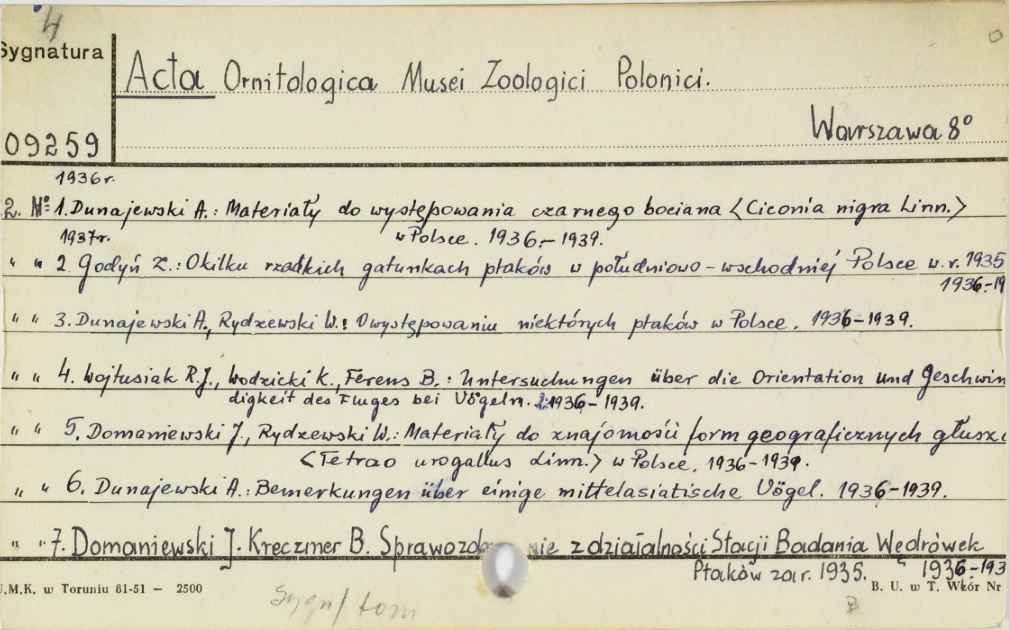 4
Sygnatura
Acta Ornitologica Musei Zoologici Polonici.
09259
Warszawa 8°
1936r.
2. № 1. Dunajewski A.: Materiały do występowania czarnego bociana <Ciconia nigra Linn.>
w Polsce. 1936-1939.
1937r.
" " 2. Godyń Z.: O kilku rzadkich gatunkach ptaków w południowo-wschodniej Polsce w.r. 1935
1936-19
" " 3. Dunajewski A., Rydzewski W.: O występowaniu niektórych ptaków w Polsce. 1936-1939.
" " 4. Wojtusiak R.J., Wodzicki K., Ferens B.: Untersuchungen über die Orientation und Geschwin
digkeit des Fluges bei Vögeln. 1936-1939.
" " 5. Domaniewski J., Rydzewski W.: Materiały do znajomości form geograficznych głuszc
<Tetrao urogallus Linn.> w Polsce. 1936-1939.
" " 6. Dunajewski A.: Bemerkungen über einige mittelasiatische Vögel. 1936-1939.
" " 7. Domaniewski J. Kreczmer B. z działalności Stacji Badania Wędrówek
Ptaków za r. 1935. 1936-193
U.M.K. w Toruniu 81-51 — 2500
B. U. w T. Wzór Nr
Sygn/tom